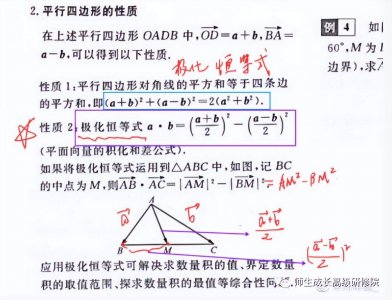 2. 平行四边形的性质
在上述平行四边形 OADB 中,$\overrightarrow{OD}=a+b$,$\overrightarrow{BA}=$
$a-b$,可以得到以下性质.
极化恒等式
性质 1:平行四边形对角线的平方和等于四条边
的平方和,即$(a+b)^2+(a-b)^2=2(a^2+b^2)$.
☆ 性质 2:极化恒等式 $a\cdot b=\left(\frac{a+b}{2}\right)^2-\left(\frac{a-b}{2}\right)^2$
(平面向量的积化和差公式).
如果将极化恒等式运用到△ABC 中,如图,记 BC
的中点为 M,则$\overrightarrow{AB}\cdot\overrightarrow{AC}=|\overrightarrow{AM}|^2-|\overrightarrow{BM}|^2$ $=AM^2-BM^2$
A
$\vec{a}$ $\vec{b}$
$\frac{\vec{a}+\vec{b}}{2}$
B M C
$\left(\frac{\vec{a}-\vec{b}}{2}\right)^2$
应用极化恒等式可解决求数量积的值、界定数量
积的取值范围、探求数量积的最值等综合性问
例 4 如
60°,M 为
边界),求
师生成长高级研修院